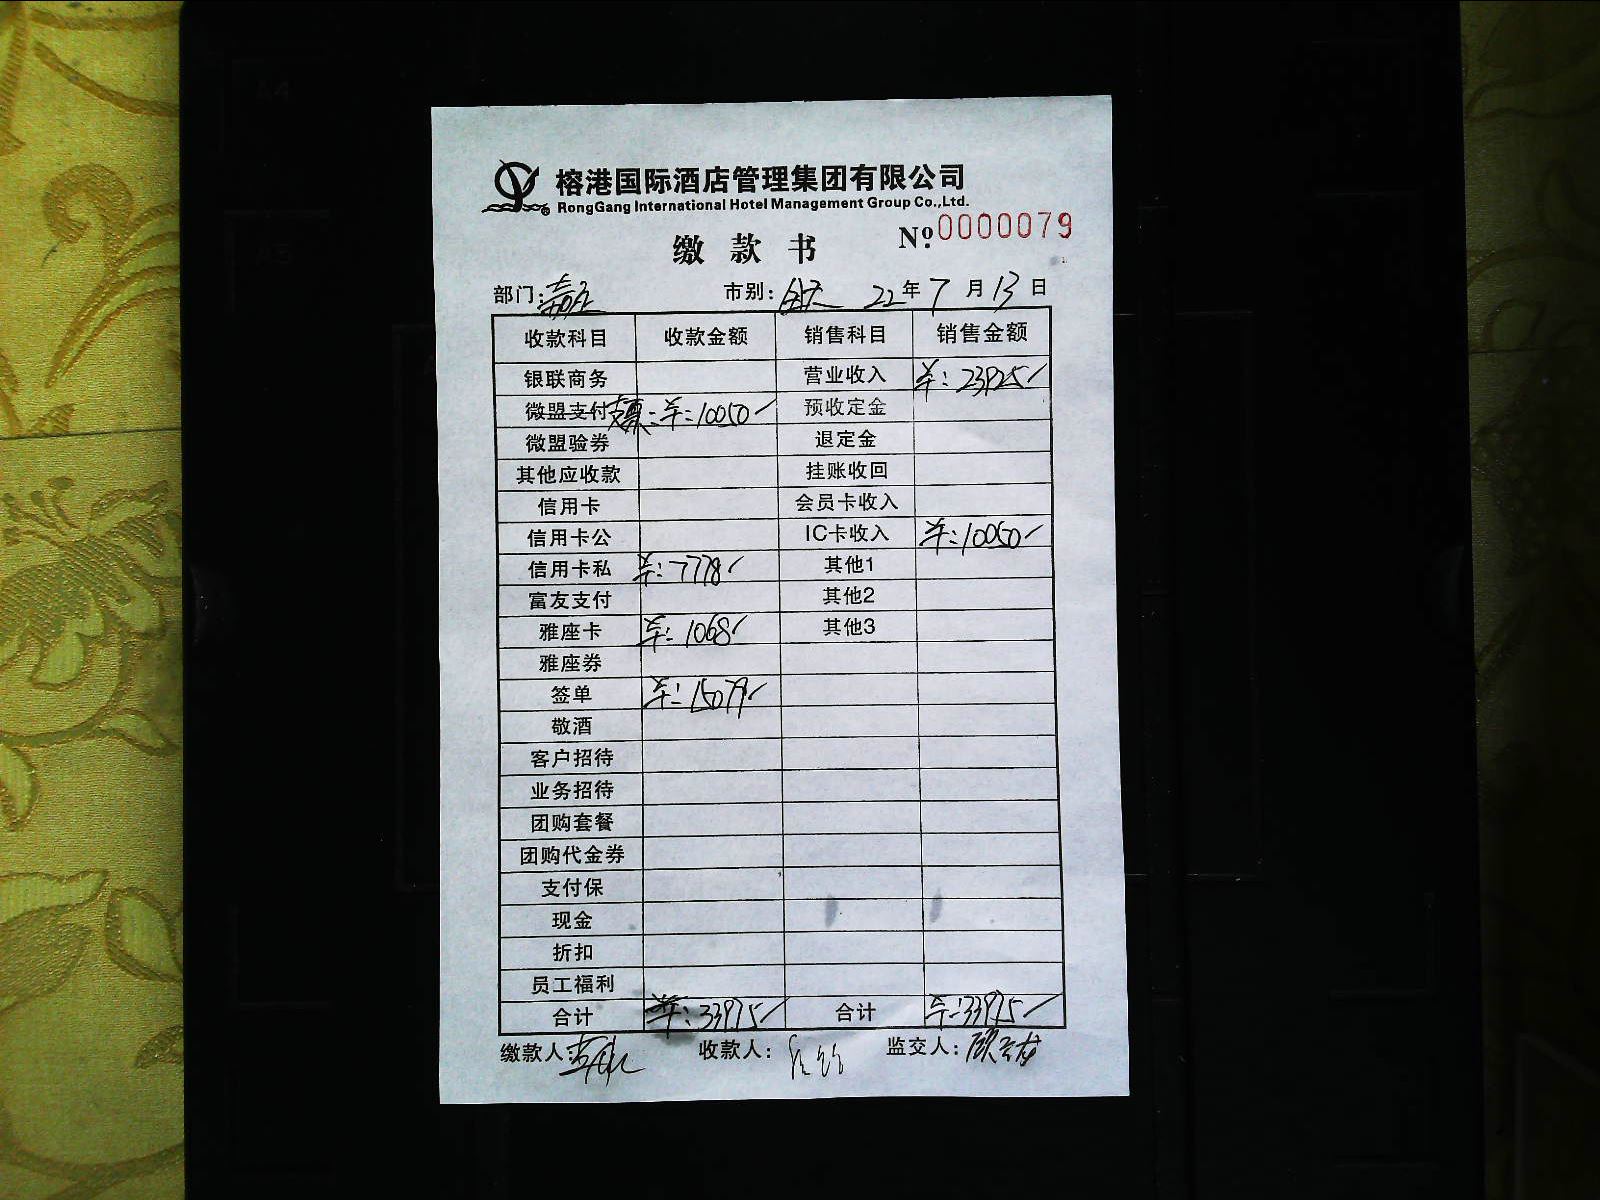 榕港国际酒店管理集团有限公司
RongGang International Hotel Management Group Co.,Ltd.
缴款书 Nº.0000079
部门: 市别: 22年7月13日
收款科目 收款金额 销售科目 销售金额
银联商务 营业收入 羊:23925
微盟支付支票:羊:10050 预收定金
微盟验券 退定金
其他应收款 挂账收回
信用卡 会员卡收入
信用卡公 IC卡收入 羊:10050
信用卡私 羊:7778 其他1
富友支付 其他2
雅座卡 羊:1068 其他3
雅座券
签单 羊:15079
敬酒
客户招待
业务招待
团购套餐
团购代金券
支付保
现金
折扣
员工福利
合计 羊:33975 合计 羊:33975
缴款人: 收款人: 监交人:
A4